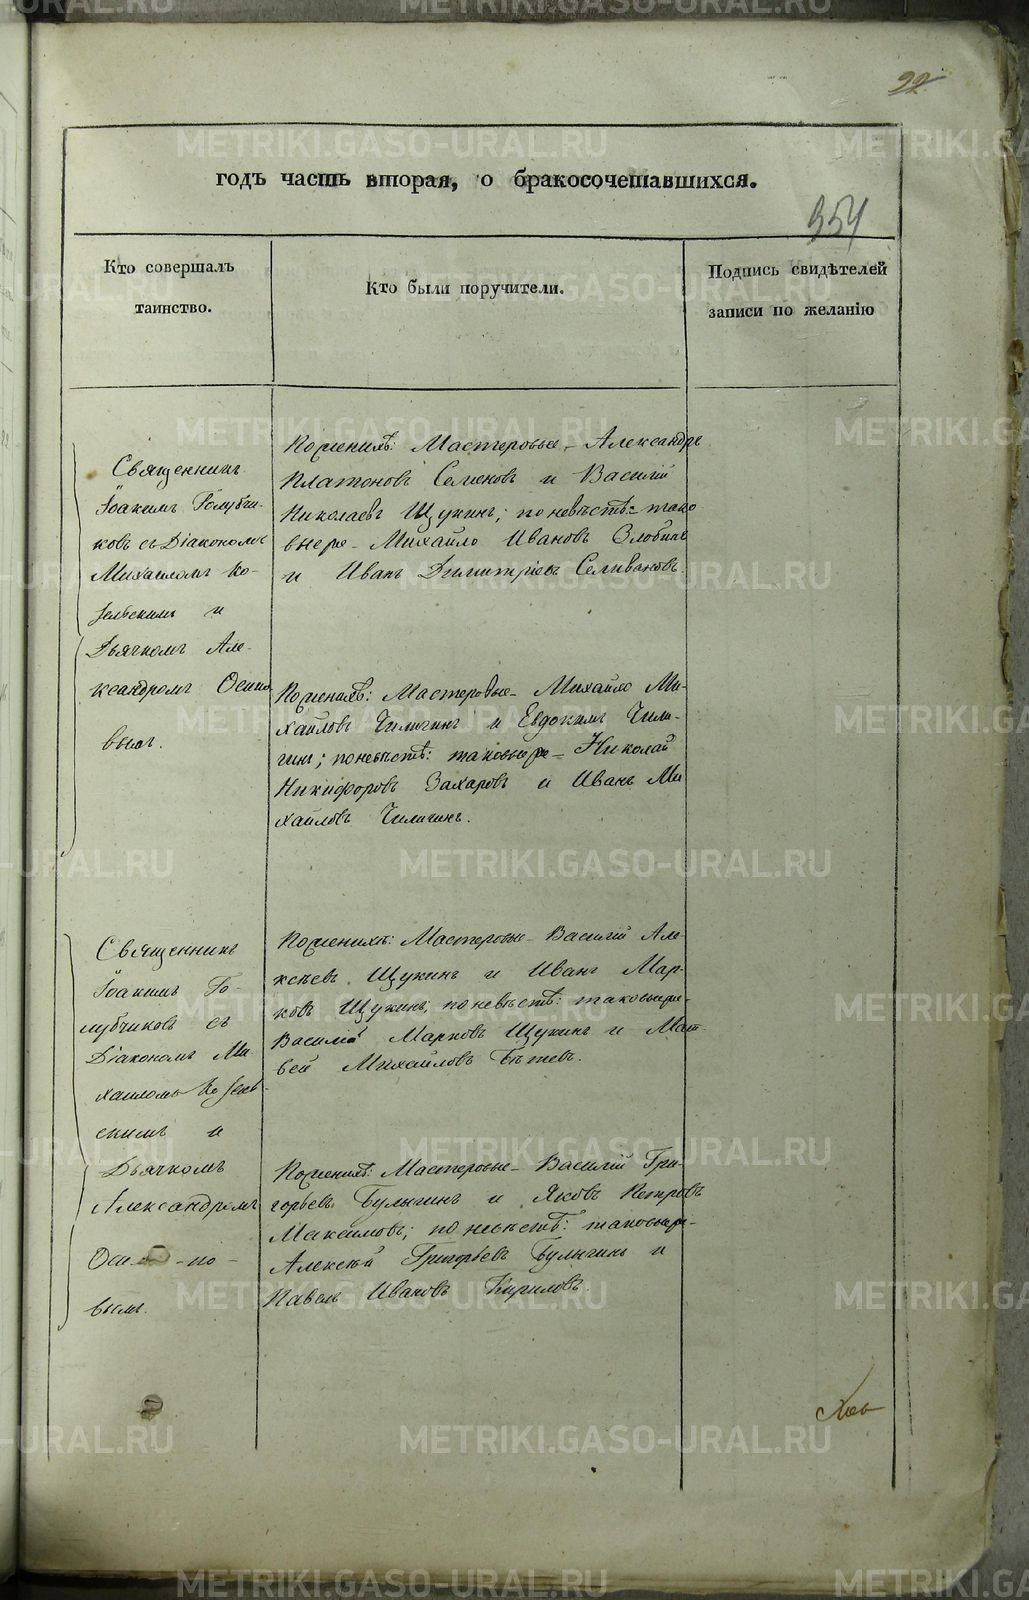 22
годъ часть вторая, о бракосочетавшихся.
354
Кто совершалъ
таинство.
Кто были поручители.
Подпись свидѣтелей
записи по желанію
Священникъ
Іоакимъ Голубчи-
ковъ съ Діакономъ
Михаиломъ Ко-
зельскимъ и
Дьячкомъ Але-
ксандромъ Осипо
вымъ.
По женихѣ: Мастеровые – Александръ
Платоновъ Семеновъ и Василій
Николаевъ Щукинъ; по невѣстѣ: тако
выеже – Михайло Ивановъ Злобинъ
и Иванъ Димитріевъ Селивановъ.
По женихѣ: Мастеровые – Михайло Ми-
хайловъ Чиличинъ и Евдокимъ Чили-
чинъ; по невѣстѣ: таковыеже – Николай
Никифоровъ Захаровъ и Иванъ Ми
хайловъ Чиличинъ.
Священникъ
Іоакимъ Го-
лубчиковъ съ
Діакономъ Ми-
хаиломъ Козель-
скимъ и
Дьячкомъ
Александромъ
Оси-по-
вымъ.
По женихѣ: Мастеровые – Василій Але-
ксѣевъ Щукинъ и Иванъ Мар-
ковъ Щукинъ; по невѣстѣ: таковыеже –
Василій Марковъ Щукинъ и Мат-
вей Михайловъ
По женихѣ: Мастеровые – Василій Гри-
горьевъ Булычинъ и Яковъ Петровъ
Максимовъ; по невѣстѣ: таковыеже –
Алексѣй Григорьевъ Булычинъ и
Павелъ Ивановъ Кириловъ.
METRIKI.GASO-URAL.RU